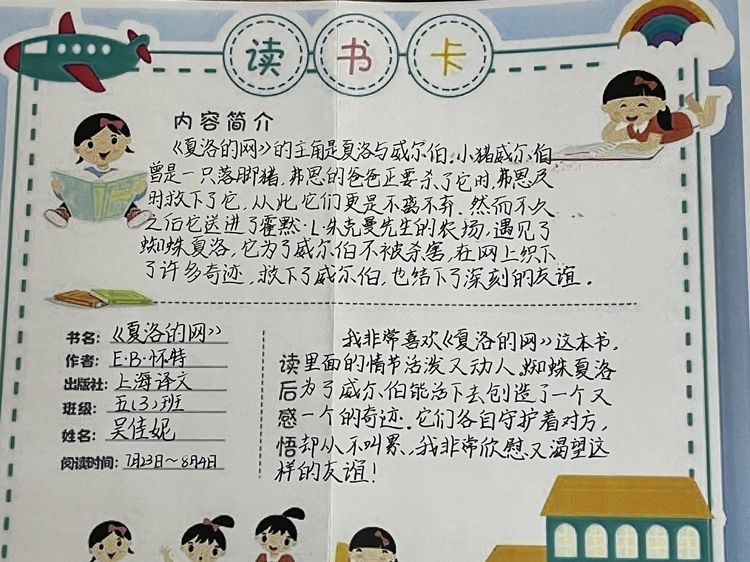 读书卡
内容简介
《夏洛的网》的主角是夏洛与威尔伯.小猪威尔伯
曾是一只落脚猪,弗恩的爸爸正要杀了它时,弗恩及
时救下了它,从此,它们更是不离不弃.然而不久
之后它送进了霍默·L·朱克曼先生的农场,遇见了
蜘蛛夏洛,它为了威尔伯不被杀害,在网上织下
了许多奇迹,救下了威尔伯,也结下了深刻的友谊.
书名:《夏洛的网》
作者:E·B·怀特
出版社:上海译文
班级:五(3)班
姓名:吴佳妮
阅读时间:7月23日~8月4日
读后感悟
我非常喜欢《夏洛的网》这本书,
里面的情节活泼又动人,蜘蛛夏洛
为了威尔伯能活下去创造了一个又
一个的奇迹.它们各自守护着对方,
却从不叫累,我非常欣慰又渴望这
样的友谊!